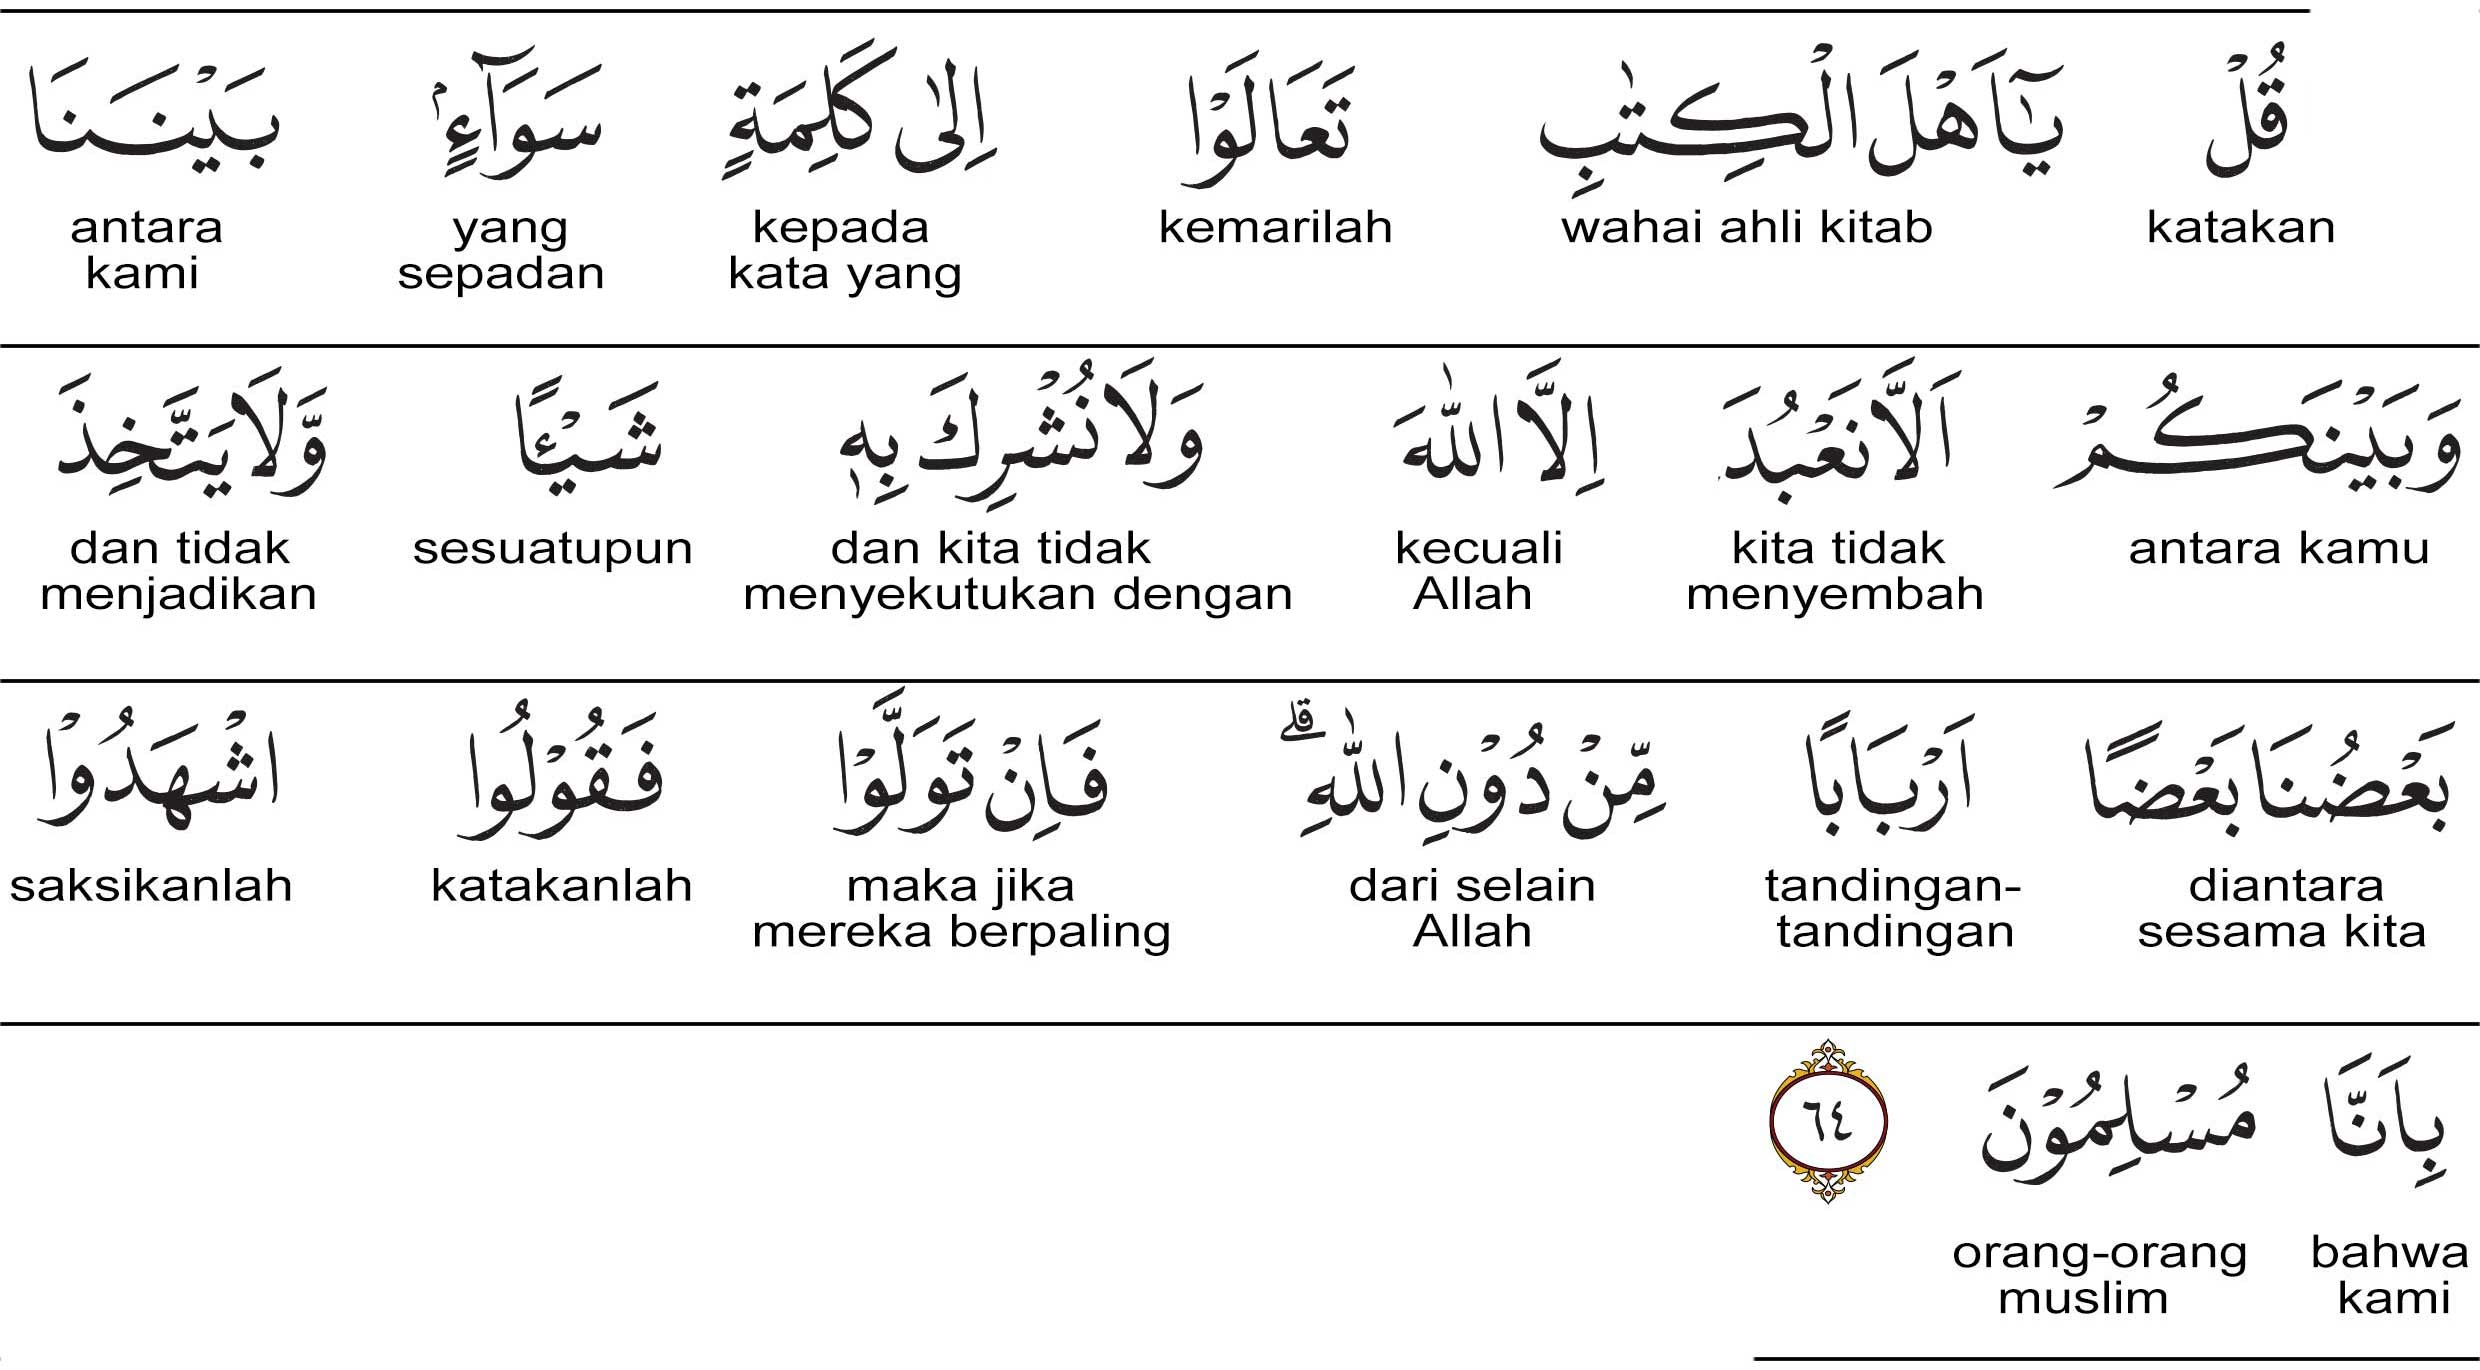 قُلْ يٰٓاَهْلَ الْكِتٰبِ تَعَالَوْا اِلٰى كَلِمَةٍ سَوَاۤءٍۢ بَيْنَنَا
katakan wahai ahli kitab kemarilah kepada kata yang yang sepadan antara kami
وَبَيْنَكُمْ اَلَّا نَعْبُدَ اِلَّا اللّٰهَ وَلَا نُشْرِكَ بِهٖ شَيْـًٔا وَّلَا يَتَّخِذَ
antara kamu kita tidak menyembah kecuali Allah dan kita tidak menyekutukan dengan sesuatupun dan tidak menjadikan
بَعْضُنَا بَعْضًا اَرْبَابًا مِّنْ دُوْنِ اللّٰهِ ۗ فَاِنْ تَوَلَّوْا فَقُوْلُوا اشْهَدُوْا
diantara sesama kita tandingan-tandingan dari selain Allah maka jika mereka berpaling katakanlah saksikanlah
بِاَنَّا مُسْلِمُوْنَ ٦٤
bahwa kami orang-orang muslim